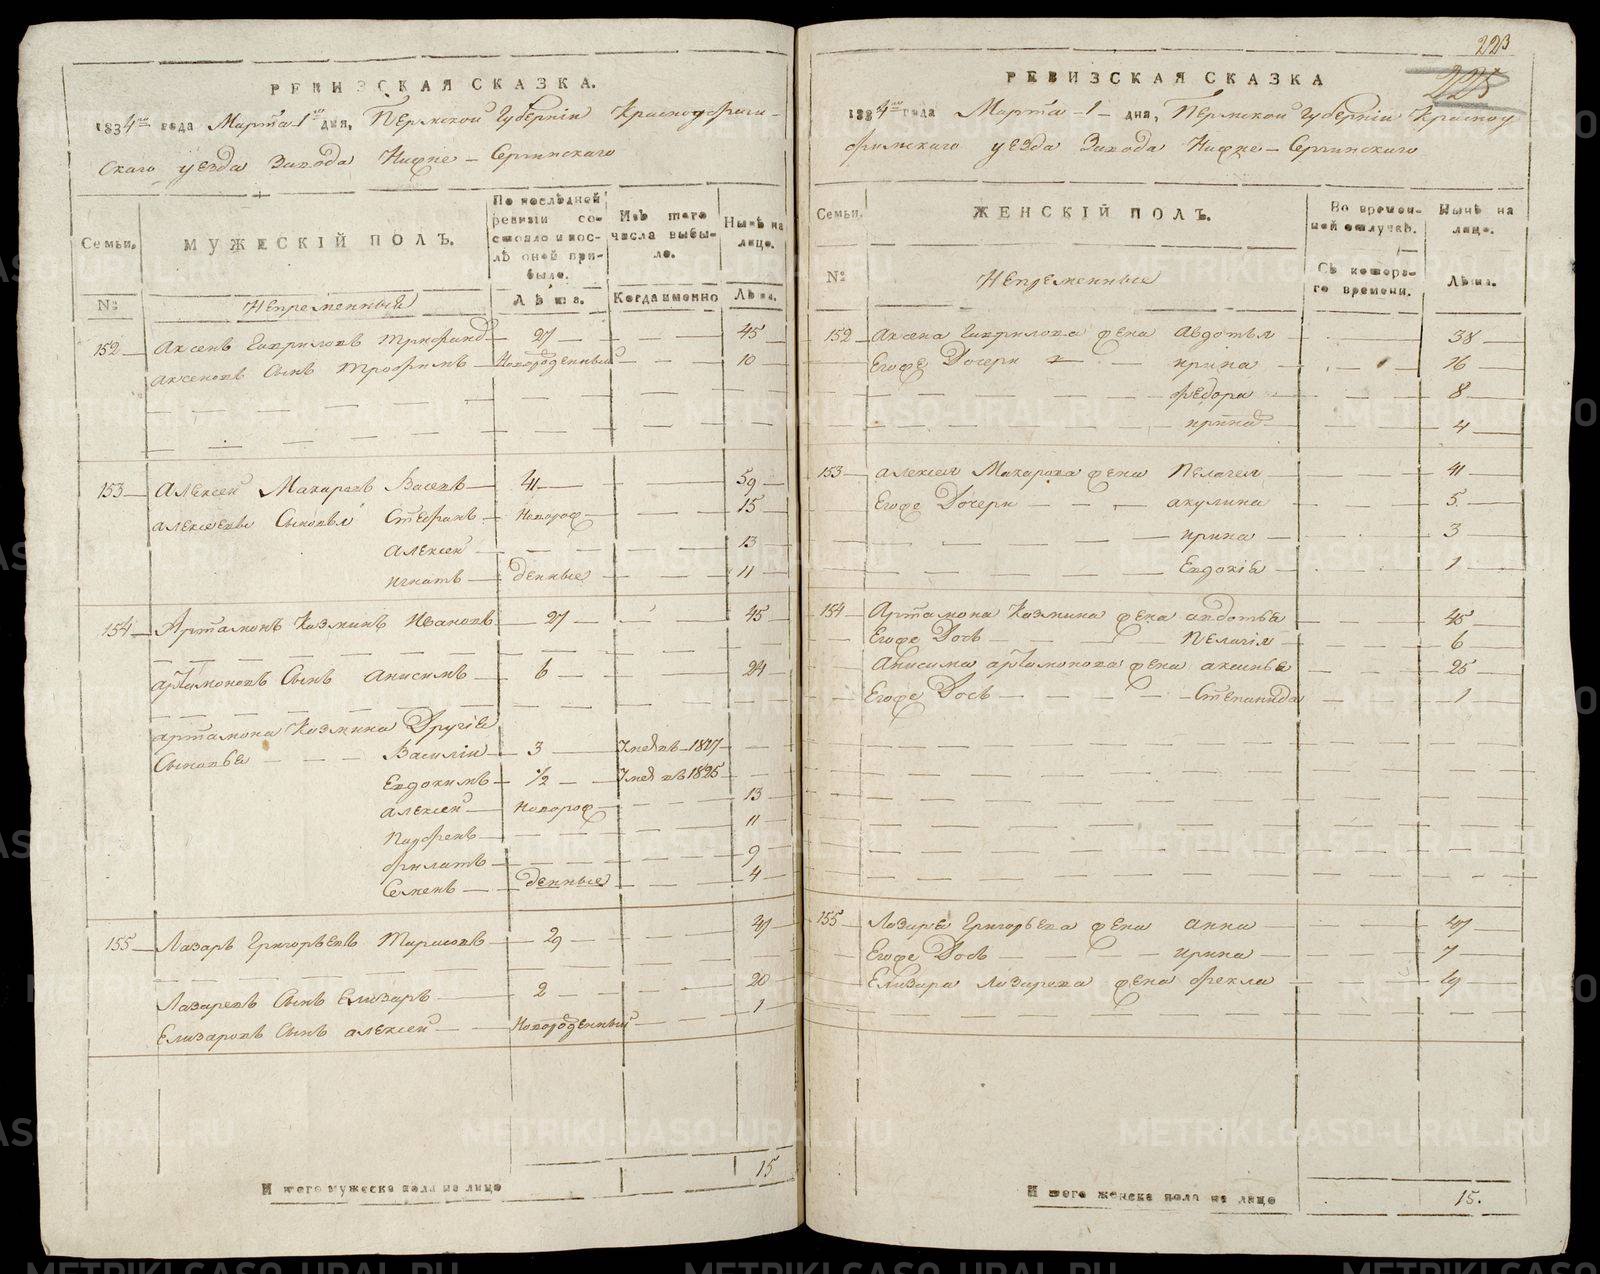 РЕВИЗСКАЯ СКАЗКА.
1834го года Марта 1го дня, Пермской Губерніи Красноуфим-
скаго уезда Завода Нижне-Сергинскаго
Семьи.
МУЖЕСКІЙ ПОЛЪ.
По послѣдней ревизіи состояло и послѣ оной прибыло.
Изъ того числа выбыло.
Нынѣ на лицо.
№
Непременныя
Лѣта.
Когда именно
Лѣта.
152 Аксенъ Гавриловъ 27 45
Аксеновъ Сынъ Трофимъ Новорожденный 10
153 Алексей Макаровъ 41 59
Алексеевы Сыновья Стефанъ Новорож 15
Алексей 13
Игнатъ денные 11
154 Артамонъ Казминъ Ивановъ 27 45
Артамоновъ Сынъ Анисимъ 6 24
Артамона Казмина Другіе
Сыновья Василіи 3 Умеръ въ 1827
Евдокимъ 1/2 Умеръ въ 1825
Алексей Новорож 13
Парфенъ 11
Филатъ 9
Семенъ денные 4
155 Лазарь Григорьевъ Тарасовъ 29 47
Лазаревъ Сынъ Елизаръ 2 20
Елизаровъ Сынъ Алексей Новорожденный 1
Итого мужеска пола на лицо 15
223
225
РЕВИЗСКАЯ СКАЗКА
1834го года Марта 1 дня, Пермской Губерніи Красноу
фимскаго уезда Завода Нижне-Сергинскаго
Семьи.
ЖЕНСКІЙ ПОЛЪ.
Во временной отлучкѣ.
Нынѣ на лицо.
№
Непременные
Съ котораго времени.
Лѣта.
152 Аксена Гаврилова жена Авдотья 38
Егоже Дочери Ирина 16
Федора 8
Ирина 4
153 Алексея Макарова жена Пелагея 41
Егоже Дочери Акулина 5
Ирина 3
Евдокія 1
154 Артамона Казмина жена Авдотья 45
Егоже Дочь Пелагія 6
Анисима Артамонова жена Аксинья 25
Егоже Дочь Степанида 1
155 Лазаря Григорьева жена Анна 47
Егоже Дочь Ирина 7
Елизара Лазарева жена Фекла 19
Итого женска пола на лицо 15.
METRIKI.GASO-URAL.RU